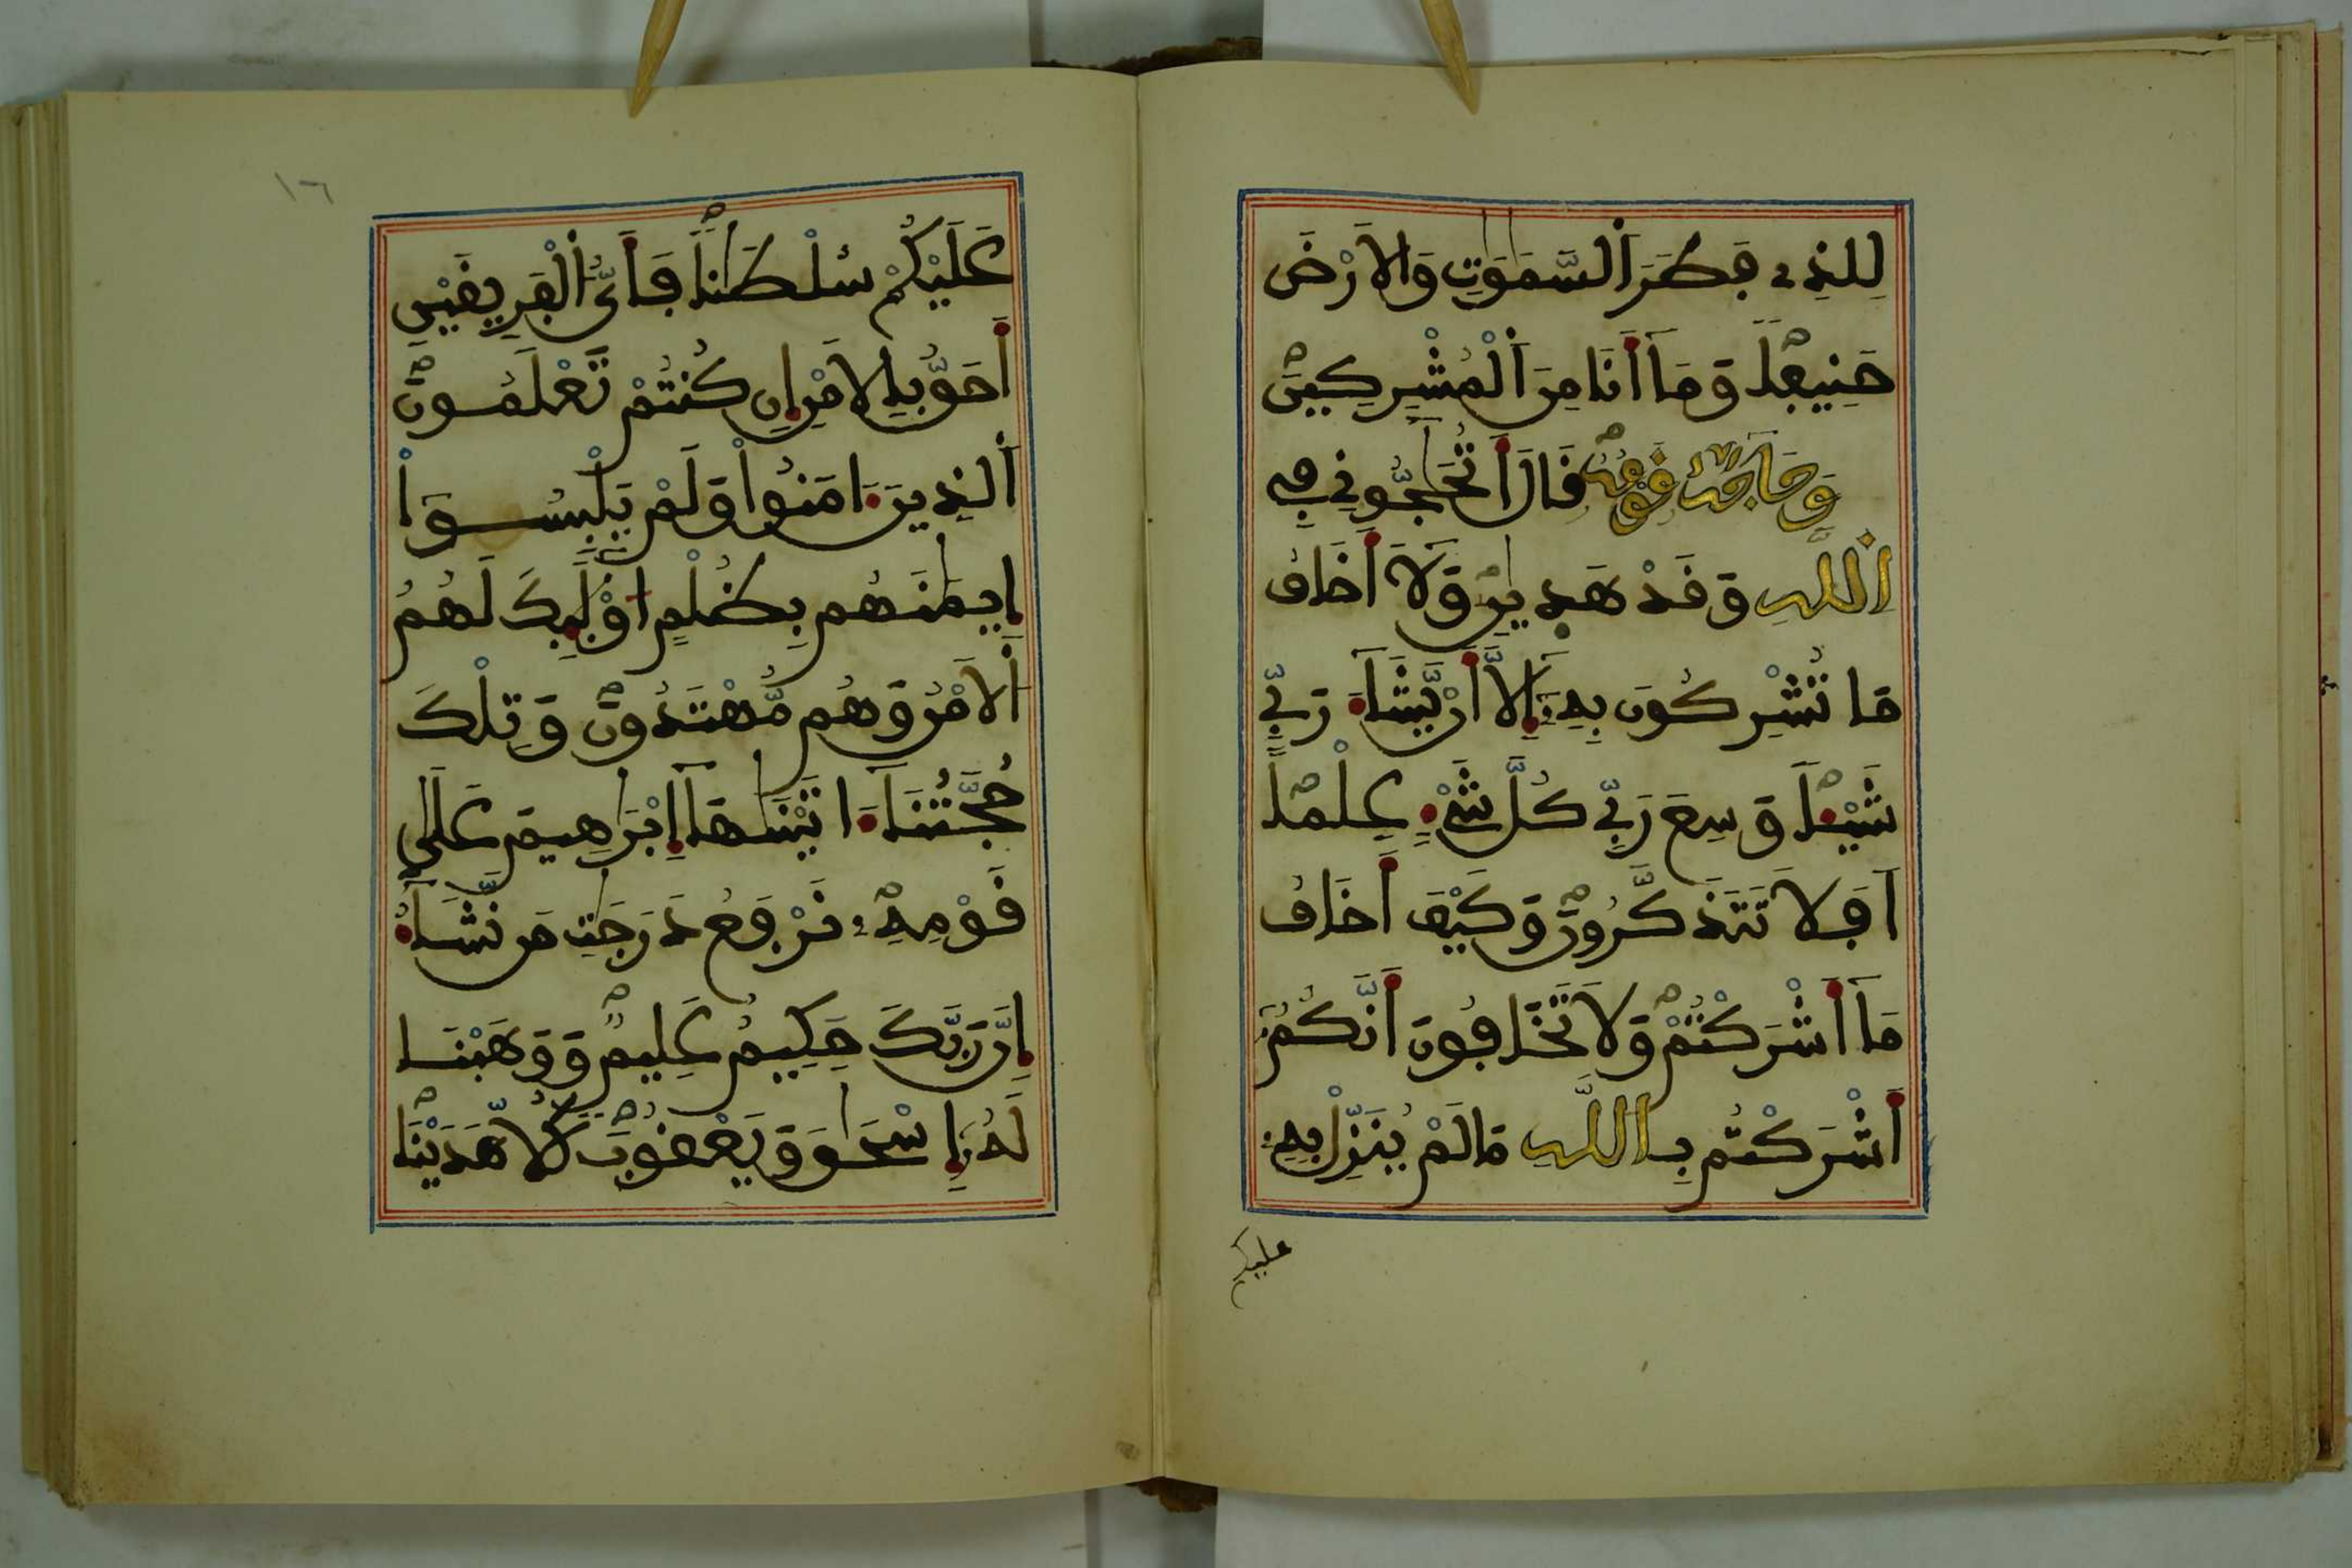 لِلذِے فَطَرَ اَ۬لسَّمَٰوَٰتِ وَالَارْضَ
حَنِيفاٗ وَمَآ أَنَا مِنَ اَ۬لْمُشْرِكِينَ
وَحَآجَّهُۥ قَوْمُهُۥ قَالَ أَتُحَٰٓجُّونِے فِے
اِ۬للَّهِ وَقَدْ هَدٜيٰنِ وَلَآ أَخَافُ
مَا تُشْرِكُونَ بِهِۦٓ إِلَّآ أَنْ يَّشَآءَ رَبِّے
شَيْـٔاٗ وَسِعَ رَبِّے كُلَّ شَےْءٍ عِلْماً
اَفَلَا تَتَذَكَّرُونَ وَكَيْفَ أَخَافُ
مَآ أَشْرَكْتُمْ وَلَا تَخَافُونَ أَنَّكُمُۥٓ
أَشْرَكْتُم بِاللَّهِ مَا لَمْ يُنَزِّلْ بِهِۦ
عليكم
١٦
عَلَيْكُمْ سُلْطَٰناٗ فَأَيُّ اُ۬لْفَرِيقَيْنِ
أَحَقُّ بِالَامْنِ إِن كُنتُمْ تَعْلَمُونَ
اَ۬لذِينَ ءَامَنُواْ وَلَمْ يَلْبِسُوٓاْ
إِيمَٰنَهُم بِظُلْمٍ ا۟وْلَٰٓئِكَ لَهُمُ
اُ۬لَامْنُ وَهُم مُّهْتَدُونَ وَتِلْكَ
حُجَّتُنَآ ءَاتَيْنَٰهَآ إِبْرَٰهِيمَ عَلَىٰ
قَوْمِهِۦ نَرْفَعُ دَرَجَٰتِ مَن نَّشَآءُ
إِنَّ رَبَّكَ حَكِيمٌ عَلِيمٌ وَوَهَبْنَا
لَهُۥٓ إِسْحَٰقَ وَيَعْقُوبَ كُلّاً هَدَيْنَا